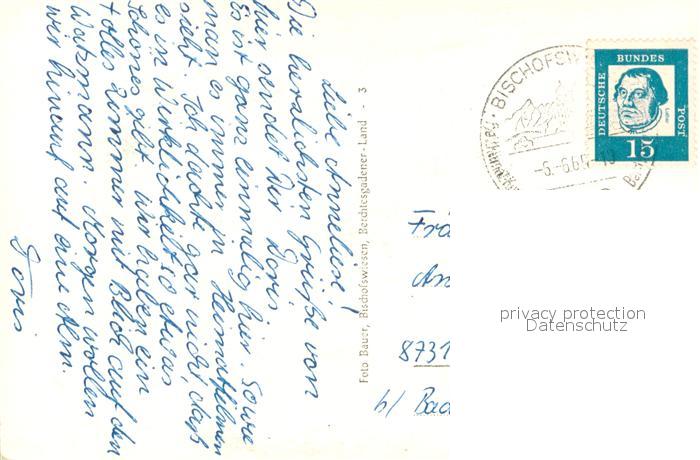 Liebe Annelise!
Die herzlichsten Grüße von
hier sendet Dir Doris.
Es ist ganz einmalig hier. Sowie
man es immer in Heimatfilmen
sieht. Ich dachte gar nicht, daß
es in Wirklichkeit so etwas
schönes gibt. Wir haben ein
tolles Zimmer mit Blick auf den
Watzmann. Morgen wollen
wir hinauf auf eine Alm.
Doris
Foto Bauer, Bischofswiesen, Berchtesgadener-Land 3
BISCHOFSW
-6.-6.6
DEUTSCHE BUNDES POST
Luther
15
Frä
An
8731
b/ Bad
privacy protection
Datenschutz